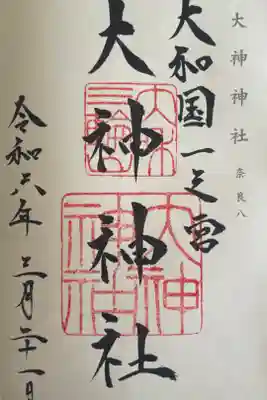 大神神社 奈良八
大和国一之宮
大神神社
大和
三輪
大神
神社
令和六年 三月二十一日